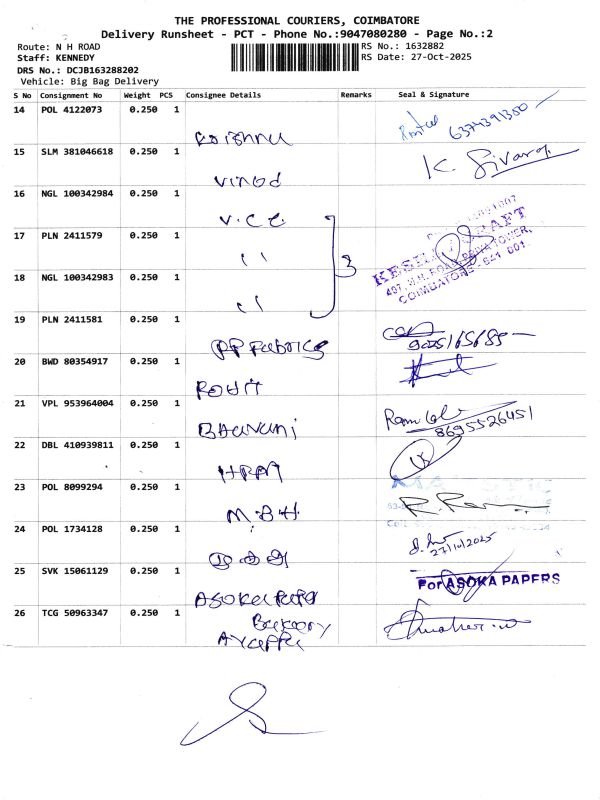 THE PROFESSIONAL COURIERS, COIMBATORE
Delivery Runsheet - PCT - Phone No.:9047080280 - Page No.:2
Route: N H ROAD RS No.: 1632882
Staff: KENNEDY RS Date: 27-Oct-2025
DRS No.: DCJB163288202
Vehicle: Big Bag Delivery
S No Consignment No Weight PCS Consignee Details Remarks Seal & Signature
14 POL 4122073 0.250 1
6374391380
Krishna
15 SLM 381046618 0.250 1 K. Sivaraj
Vinod
16 NGL 100342984 0.250 1
V.C.C
17 PLN 2411579 0.250 1
" 3
18 NGL 100342983 0.250 1 COIMBATORE - 641 001.
"
19 PLN 2411581 0.250 1
PP Fabrics
20 BWD 80354917 0.250 1
Rohit
21 VPL 953964004 0.250 1
Bhavani 8695526451
22 DBL 410939811 0.250 1
23 POL 8099294 0.250 1
M.B.H
24 POL 1734128 0.250 1
27/10/2025
25 SVK 15061129 0.250 1 For ASOKA PAPERS
Asoka Paper
26 TCG 50963347 0.250 1
Bakery
Ayappa